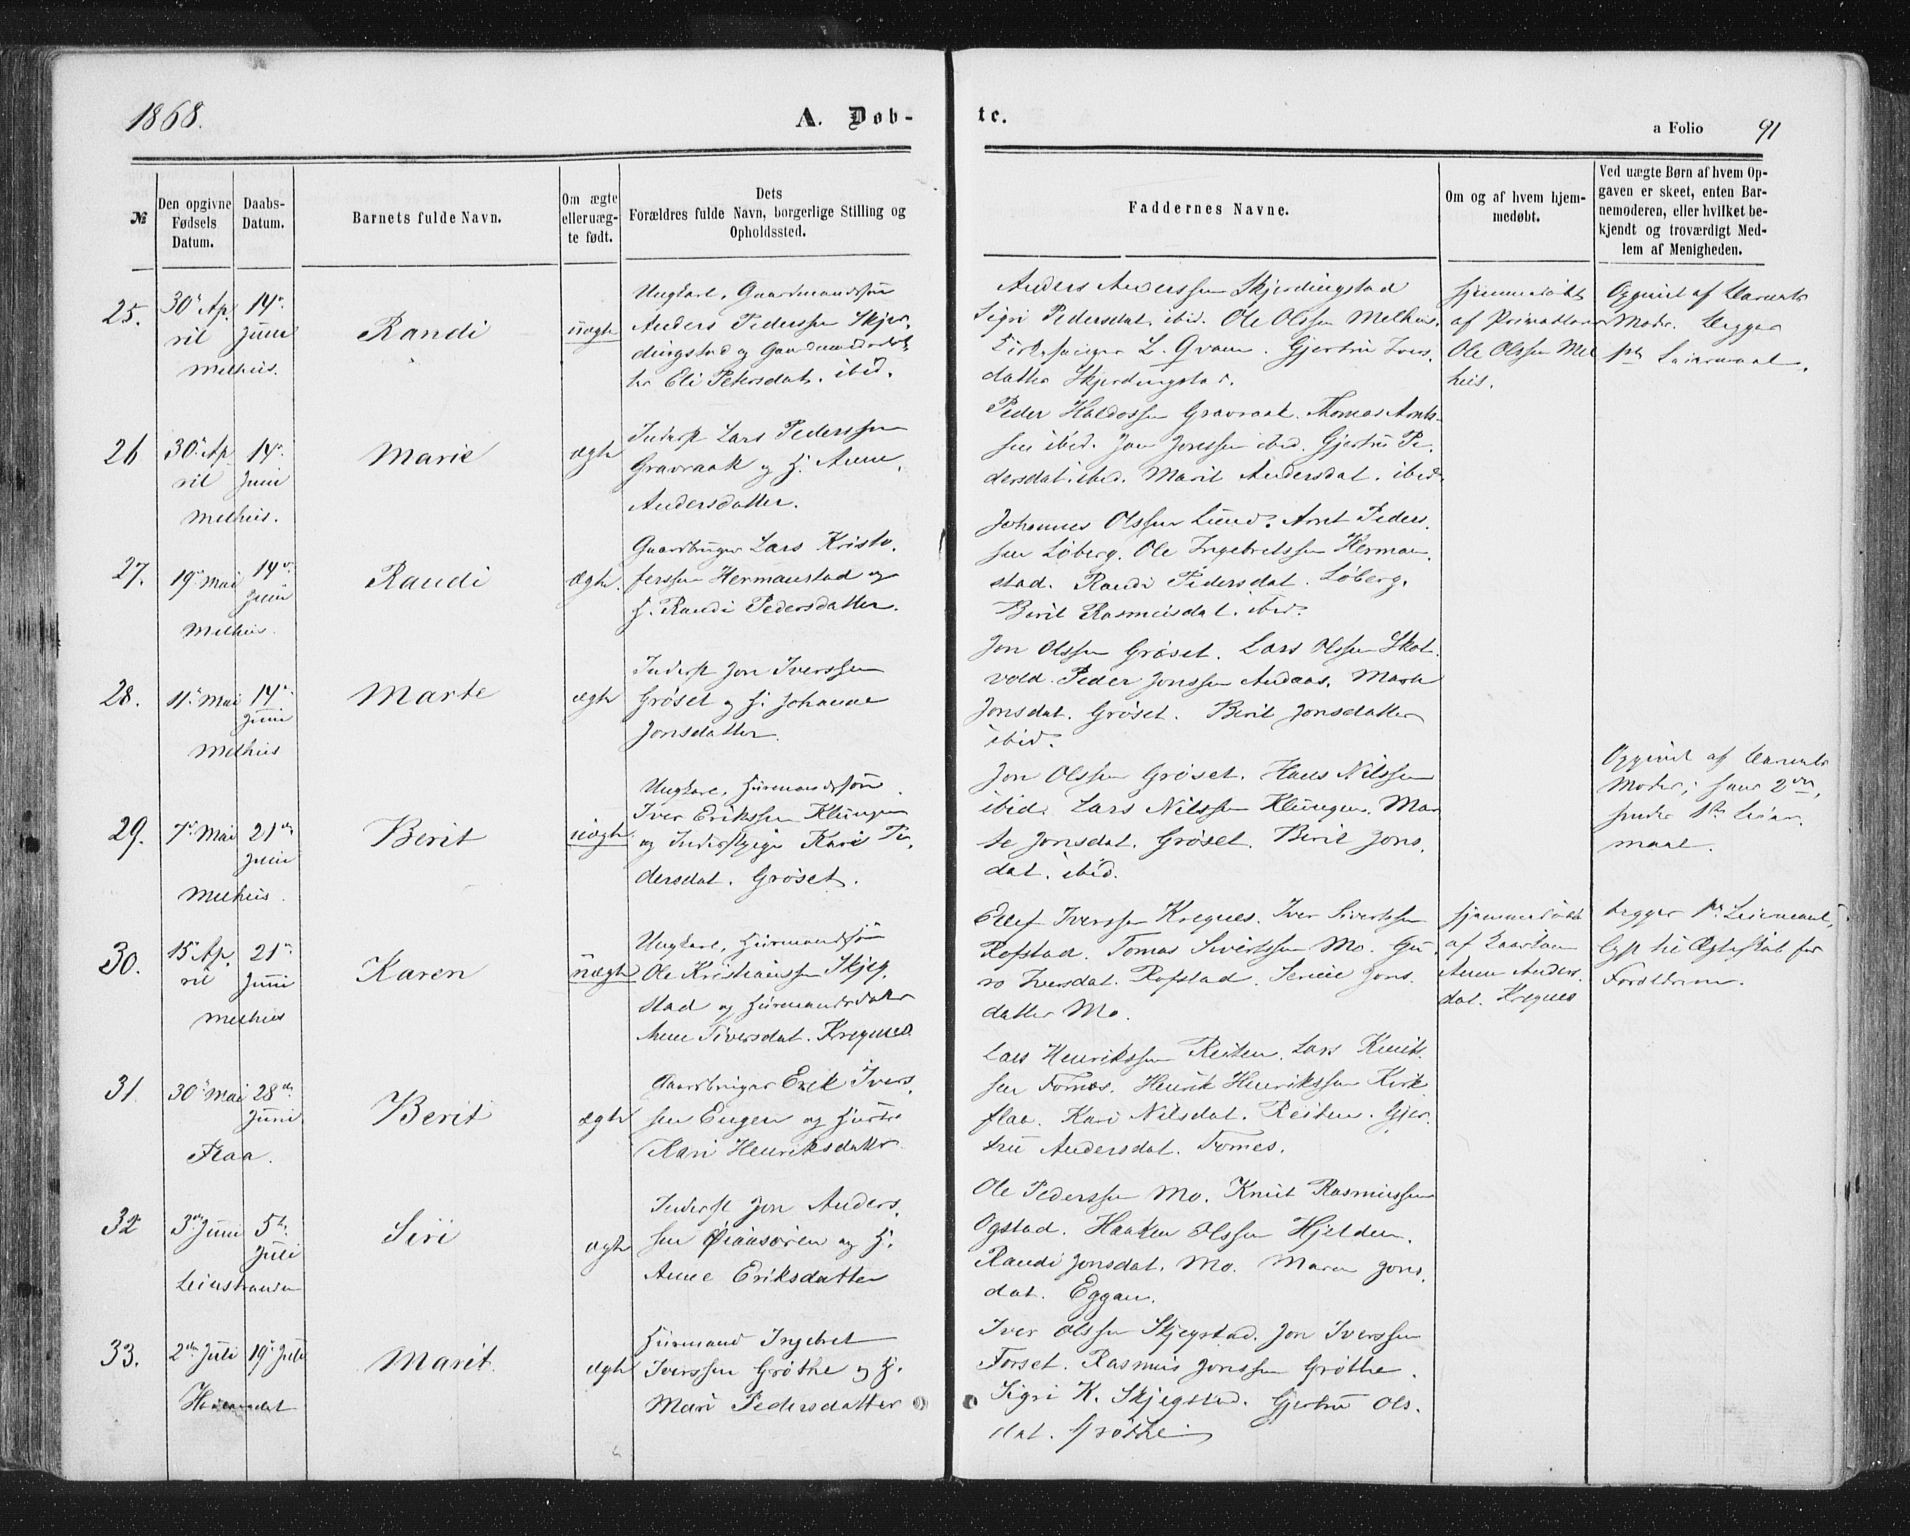 1868.
A. Døb-
te.
a Folio 91
№
Den opgivne Fødsels Datum.
Daabs-Datum.
Barnets fulde Navn.
Om ægte eller uæg-te født.
Dets Forældres fulde Navn, borgerlige Stilling og Opholdssted.
Faddernes Navne.
Om og af hvem hjem-medøbt.
Ved uægte Børn af hvem Op-gaven er skeet, enten Bar-nemoderen, eller hvilket be-kjendt og troværdigt Med-lem af Menigheden.
25.
30' Ap.
ril
Melhus.
14de
Juni
Randi
uægte
Ungkarl, Gaardmandssøn
Anders Pederssen Skjer-
dingstad og Gaardmandsdat-
ter Eli Petersdat. ibid.
Anders Anderssen Skjerdingstad
Sigri Pedersdat. ibid. Ole Olssen Melhus.
Kirkesanger L. Qvam. Gjertru Ivers-
datter Skjerdingstad.
Hjemmedøbt
af Privatlærer
Ole Olssen Mel
hus.
Opgivet af Barnets
Moder. Begges
1ste Leiermaal.
26
30' Ap.
ril
Melhus.
14de
Juni
Marie
ægte
Inderst Lars Pederssen
Gravraak og H. Anne
Andersdatter.
Peder Haldossen Gravraak. Thomas Arnts-
sen ibid. Jon Jonssen ibid. Gjertru Pe-
dersdat. ibid. Marit Andersdat. ibid.
27.
19de Mai
Melhus.
14de
Juni
Randi
Ægte.
Gaardbruger Lars Kristo-
ferssen Hermanstad og
H. Randi Pedersdatter.
Johannes Olssen Lund. Arnt Peders-
sen Løberg. Ole Ingebretssen Herman-
stad. Randi Pedersdat. Løberg.
Berit Rasmusdat. ibid.
28.
11te Mai
Melhus
14de
Juni
Marte
ægte
Inderst Jon Iverssen
Grøset og H. Johanne
Jonsdatter.
Jon Olssen Grøset. Lars Olssen Skot-
vold. Peder Jonssen Andaas. Marte
Jonsdat. Grøset. Berit Jonsdatter
ibid.
29.
7de Mai
Melhus.
21de
Juni
Berit
uægte
Ungkarl, Husmandssøn
Iver Erikssen Klungen
og Inderstpige Kari Pe-
dersdat. Grøset.
Jon Olssen Grøset. Hans Nilssen
ibid. Lars Nilssen Klungen. Mar
te Jonsdat. Grøset. Berit Jons-
dat. ibid.
Opgivet af Barnets
Moder; hans 2det,
hendes 1ste Leier-
maal.
30.
15' Ap.
ril
Melhus
21de
Juni
Karen
uægte
Ungkarl, Husmandssøn
Ole Kristianssen Skjeg-
stad og Husmandsdatter
Anne Siversdat. Kregnes
Ellef Iverssen Kregnes. Iver Sivertssen
Rofstad. Tomas Sivertssen Mo. Gu-
ro Iversdat. Rofstad. Jons-
datter Mo.
Hjemmedøbt
af
Anne Anders-
dat. Kregnes
Begges 1ste Leiermaal,
lyst til Ægteskab for
Forældrene.
31.
30' Mai
Flaa.
28de
Juni
Berit
ægte
Gaardbruger Erik Ivers-
sen Eugen og Hustru
Kari Henriksdatter
Lars Henrikssen Reiten. Lars
sen Fornes. Henrik Henrikssen Kirk
flaa. Kari Nilsdat. Reiten. Gjer-
tru Andersdat. Fornes.
32
3die Juni
Leinstranden
5te
Juli
Siri
ægte
Inderst Jon Anders-
sen Øiaasøren og H.
Anne Eriksdatter
Ole Pederssen Mo. Knut Rasmussen
Øgstad. Haaken Olssen Hjelden.
Randi Jonsdat. Mo. Maren Jons-
dat. Eggan.
33.
2den Juli
19de Juli
Marit
ægte
Husmand Ingebret
Iverssen Grøthe og H.
Mari Pedersdatter
Iver Olssen Skjegstad. Jon Iverssen
Forset. Rasmus Jonssen Grøthe.
Sigri K. Skjegstad. Gjertru Ols-
dat. Grøthe